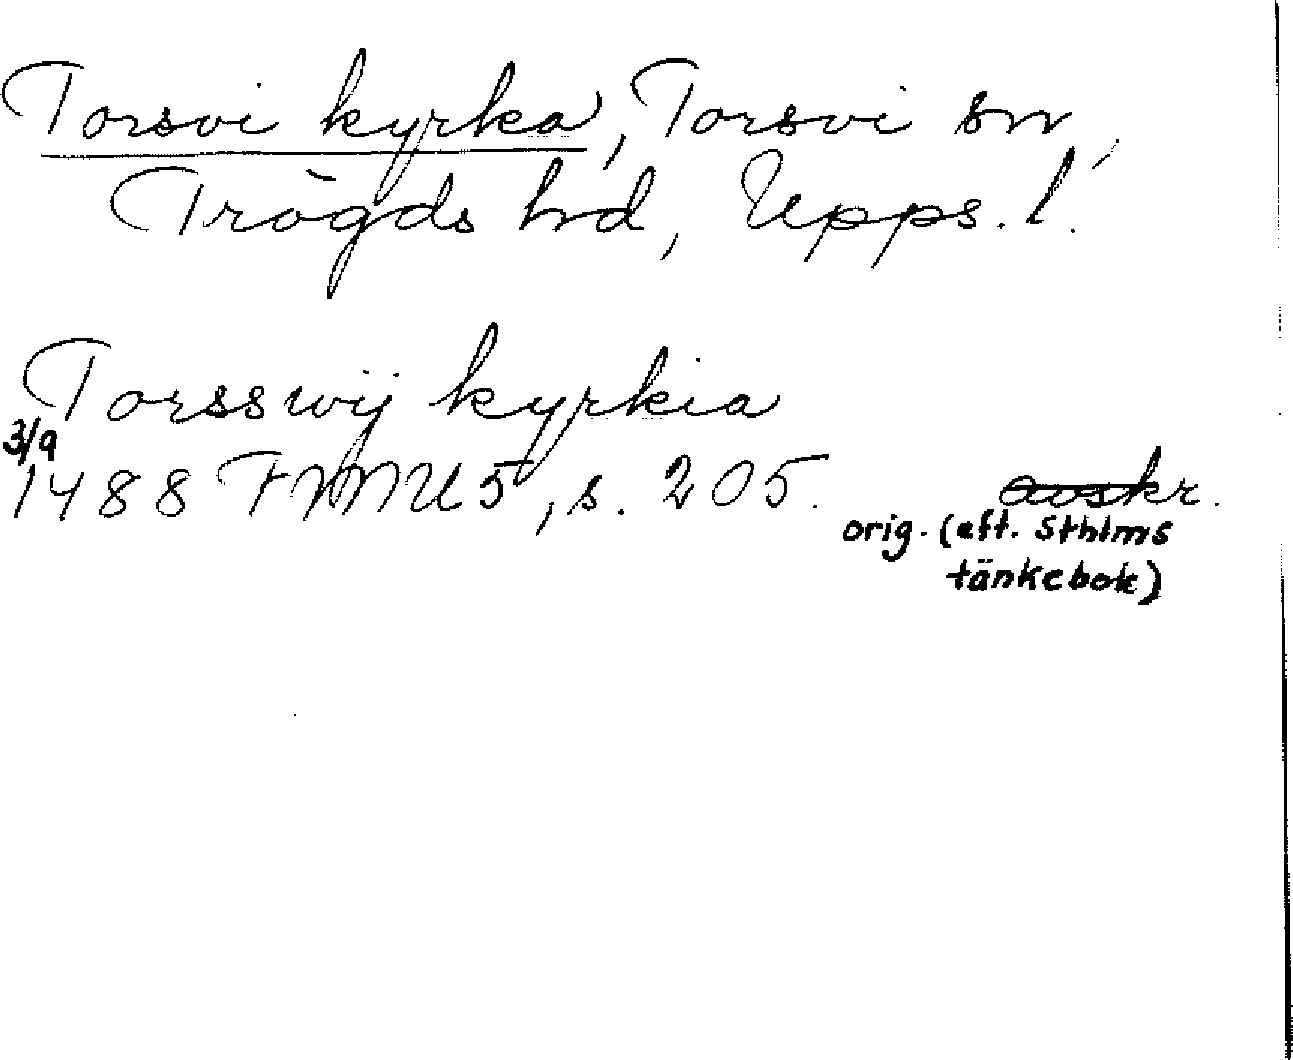 Torsvi kyrka, Torsvi sn,
Trögds hd, Upps. l.
Torsswij kyrkia
3/9
1488 FMU 5, s. 205. avskr.
orig. (eft. Sthlms
tänkebok)